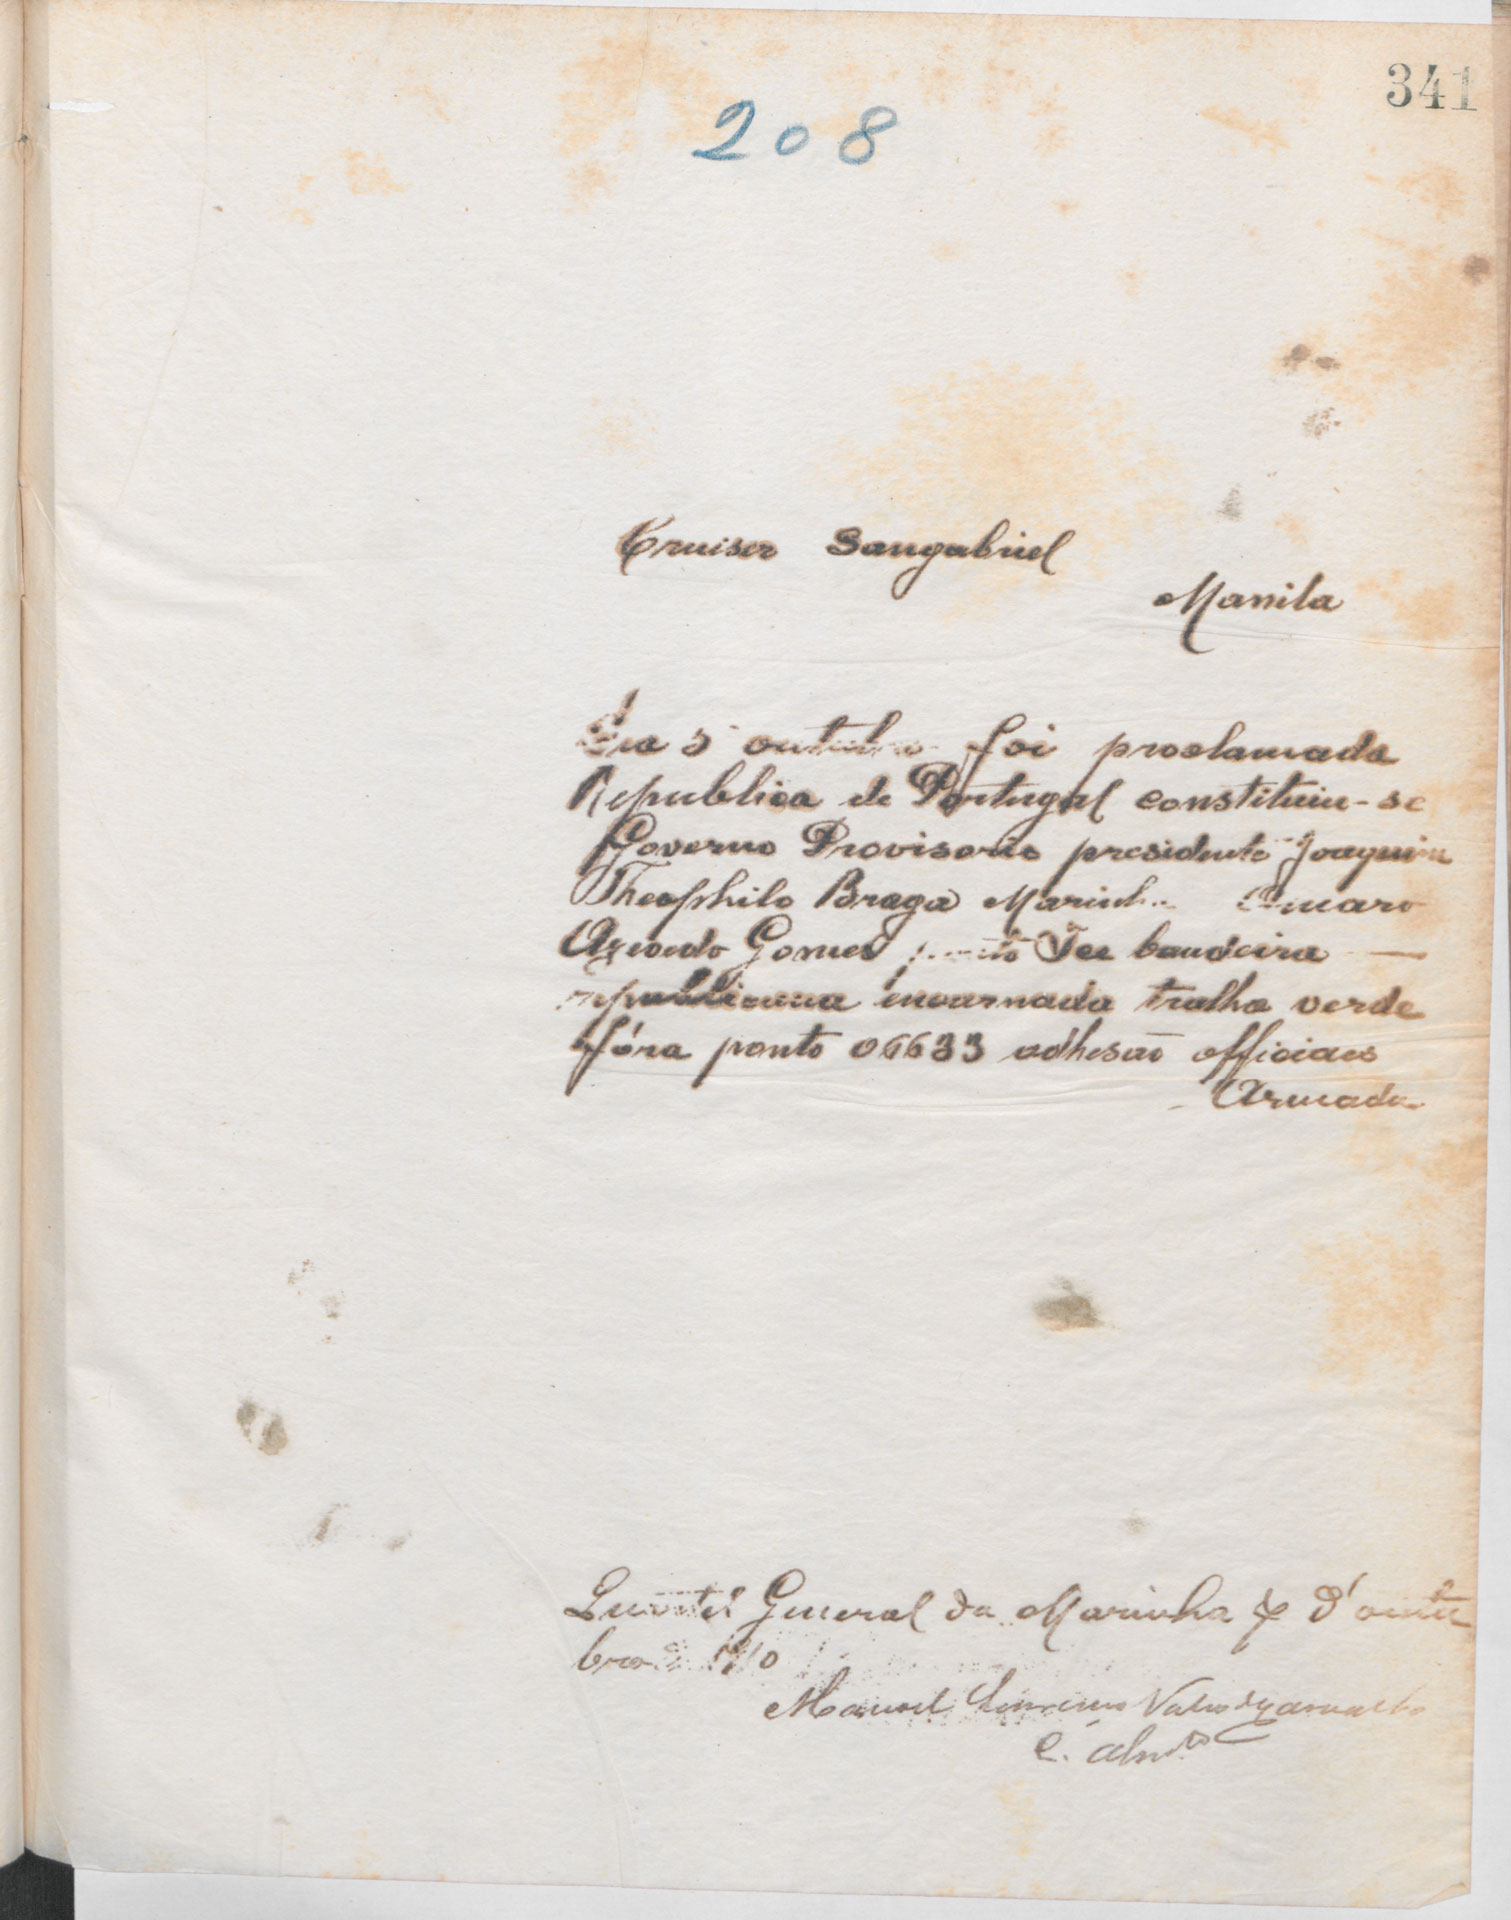 341
208
Cruiser Sangabriel
Manila
Dia 5 outubro foi proclamada
Republica de Portugal constituiu-se
Governo Provisorio presidente Joaquim
Theophilo Braga Marinha Amaro
Azevedo Gomes ponto Ice bandeira
republicana encarnada tralha verde
fóra ponto 06633 adhesão officiaes
Armada
Quartel General da Marinha 8 d'outu
bro 1910
Manoel Lourenço Vasco de Carvalho
C. Almte